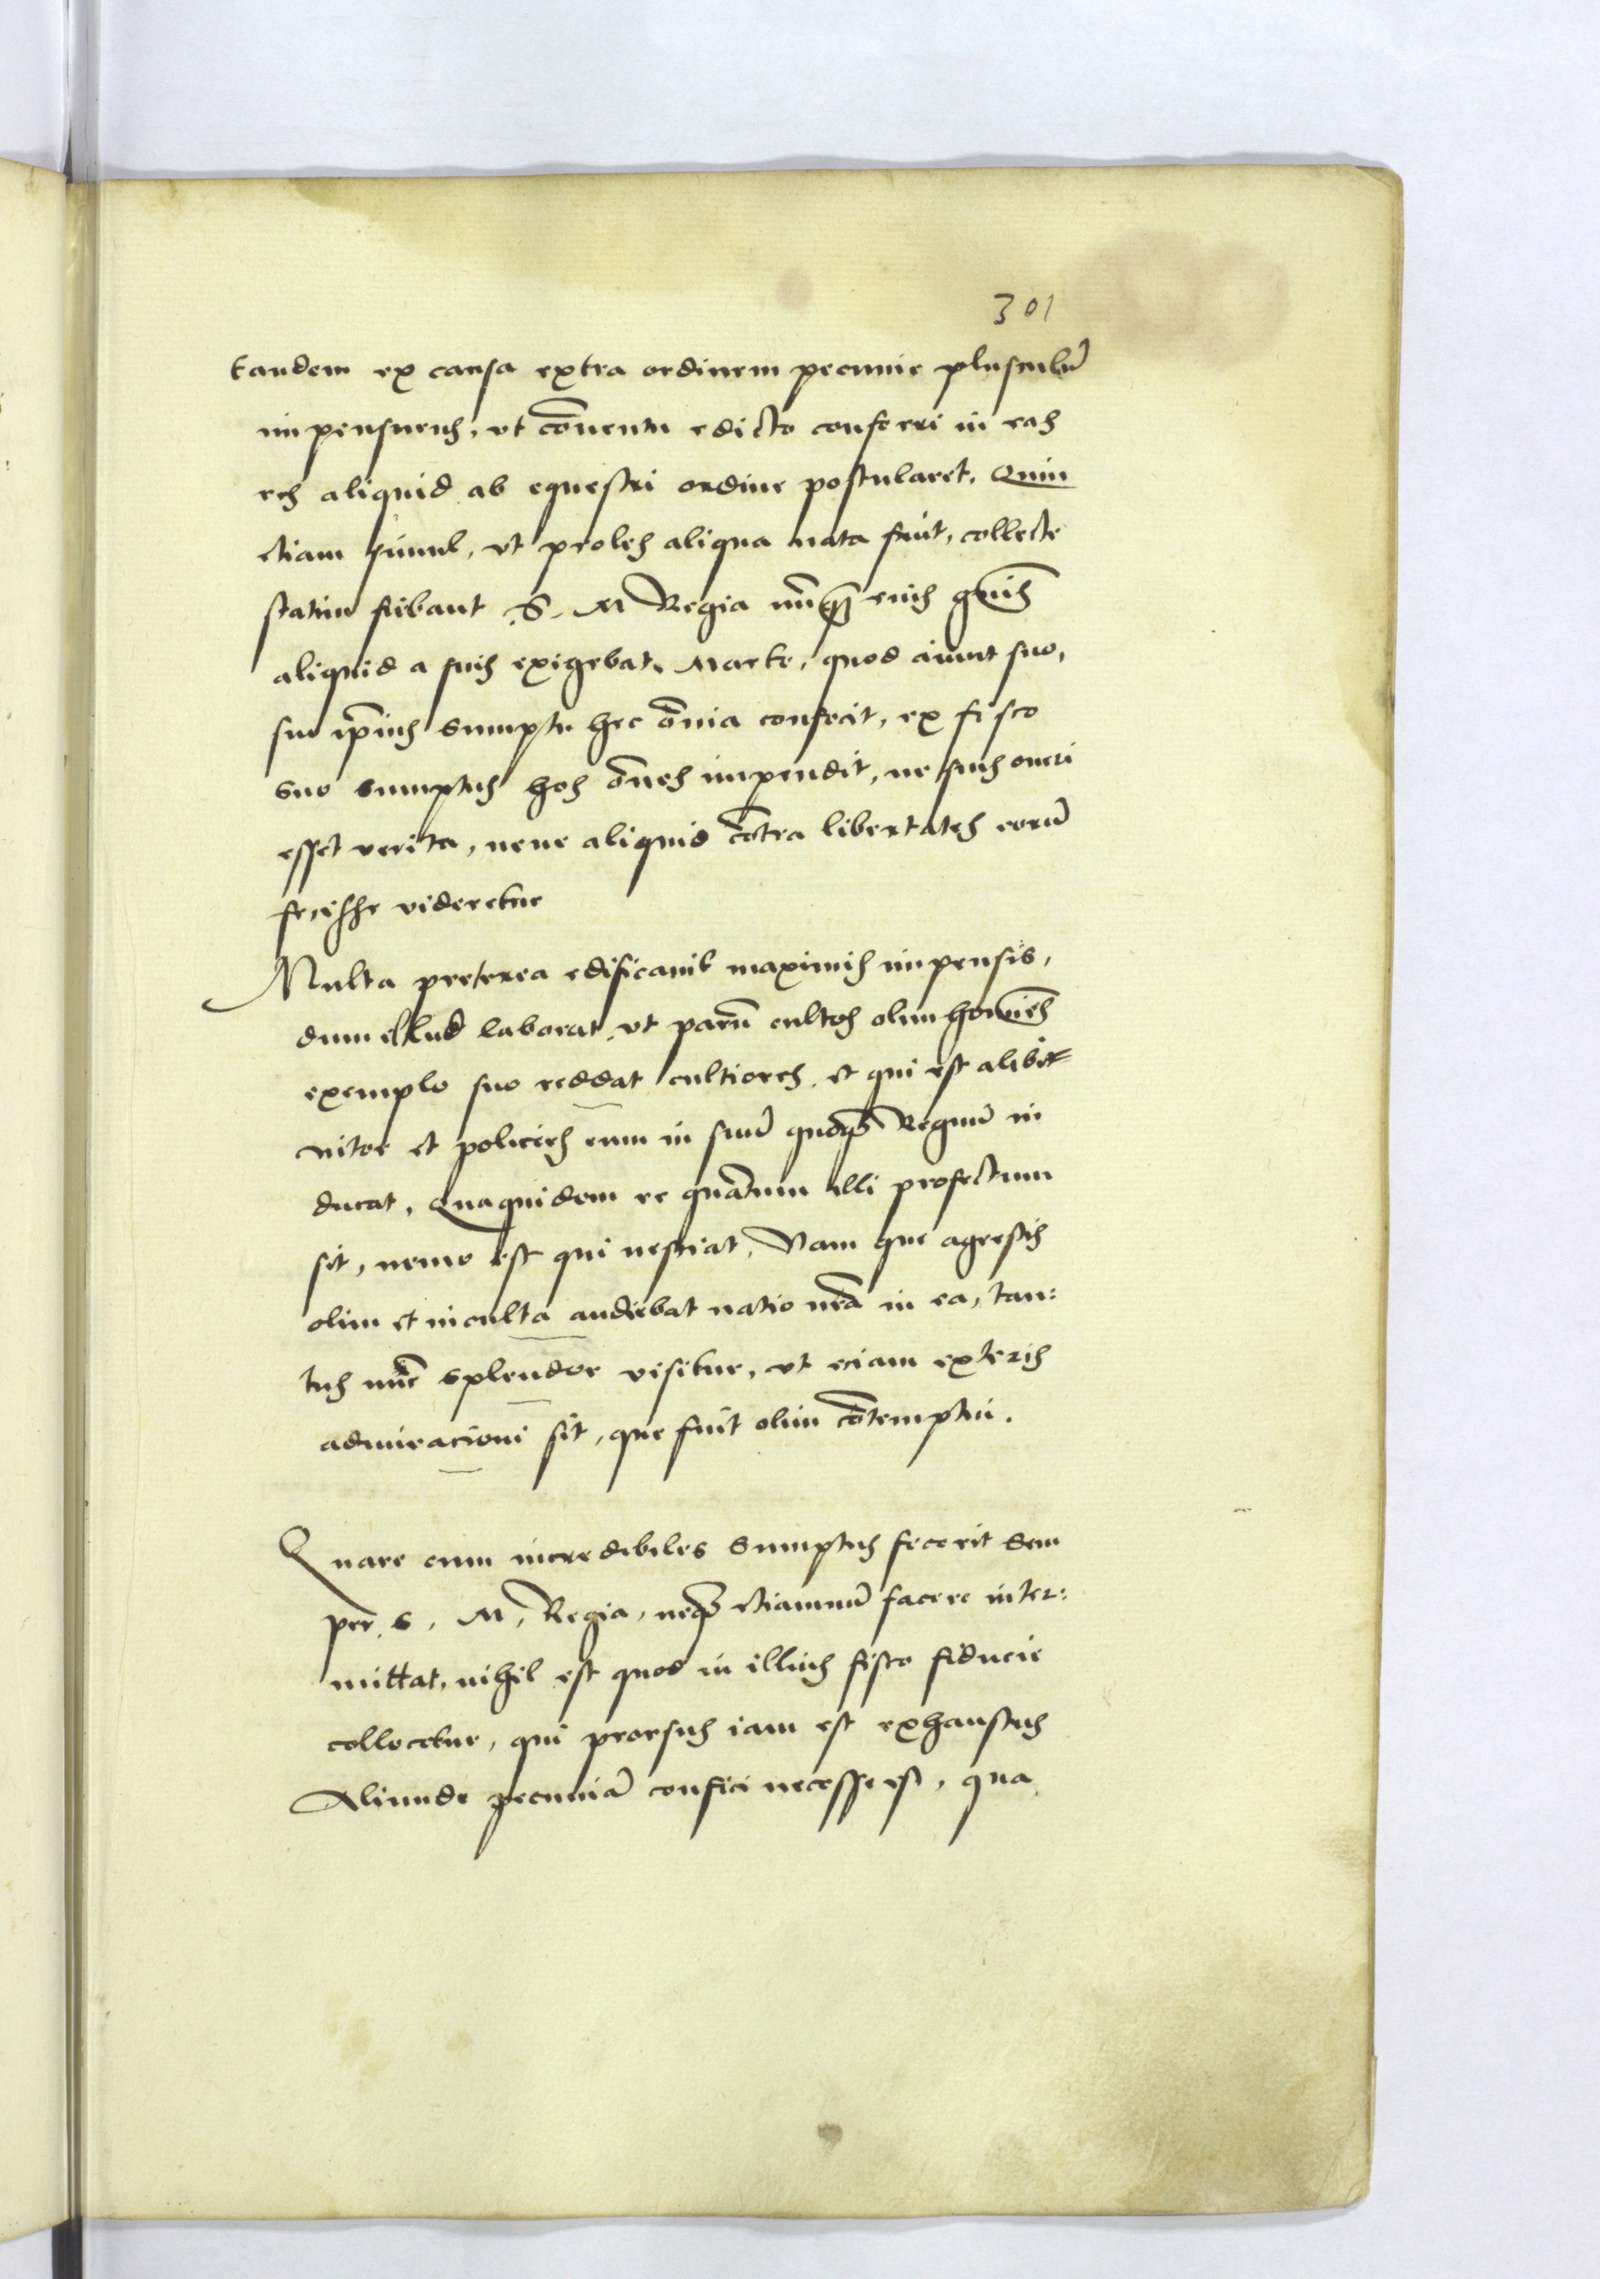 301
tandem ex causa extra ordinem pecunie plusculū
impensurus, vt cōuentu edicto conferri in eas
res aliquid ab equestri ordine postularet. Quin
etiam simul, vt proles aliqua nata fuit, collecte
statim fiebant. S. M Regia nūqꝫ eius gnīs
aliquid a suis exigebat. Marte, quod aiunt suo,
suo ip̄ius sumptu hec ōmnia confecit, ex fisco
suo sumptus hos ōnes impendit, ne suis oneri
esset verita, neue aliquid cōtra libertates eorū
fecisse videretur
Multa preterea edificauit maximis impensis,
dum illud laborat, vt parū cultos olim homīes
exemplo suo reddat cultiores, et qui est alibi
nitor et policies eum in suū quoqꝫ Regnū in
ducat. Quaquidem re quātum illi profectum
sit, nemo est qui nesciat. Nam que agrestis
olim et inculta audiebat natio nr̄a in ea, tan:
tus nūc splendor visitur, vt eciam exteris
admiracioni sit, que fuit olim cōtemptui.
Quare cum incredibiles sumptus fecerit sem
per S. M. Regia, neqꝫ etiamnū facere inter:
mittat, nihil est quod in illius fisco fiducie
collocetur, qui prorsus iam est exhaustus
Aliunde pecuniā confici necesse est, qua